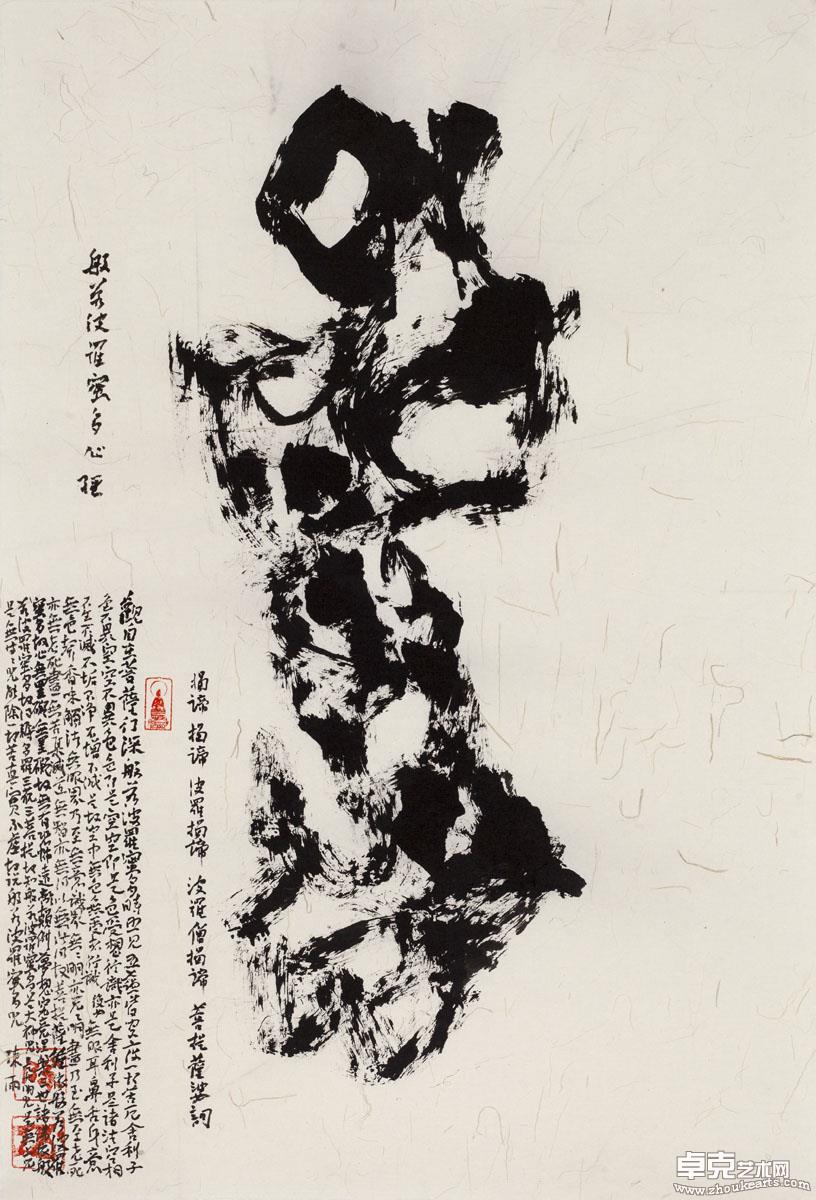 般若波羅蜜多心經
觀自在菩薩行深般若波羅蜜多時照見五蘊皆空度一切苦厄舍利子
色不異空空不異色色即是空空即是色受想行識亦是舍利子是諸法空相
不生不滅不垢不淨不增不減是故空中無色無受想行識無眼耳鼻舌身意
無色聲香味觸法無眼界乃至無意識界無無明亦無無明盡乃至無老死
亦無老死盡無苦集滅道無智亦無得以無所得故菩提薩埵依般若波羅
蜜多故心無罣礙無罣礙故無有恐怖遠離顛倒夢想究竟涅槃三世諸佛依般
若波羅蜜多故得三藐三菩提故知般若波羅蜜多是大神咒是大明咒是無上
是無等等咒能除一切苦真實不虛故說般若波羅蜜多咒
揭諦 揭諦 波羅揭諦 波羅僧揭諦 菩提薩婆訶
卓克艺术网
www.zhoukearts.com